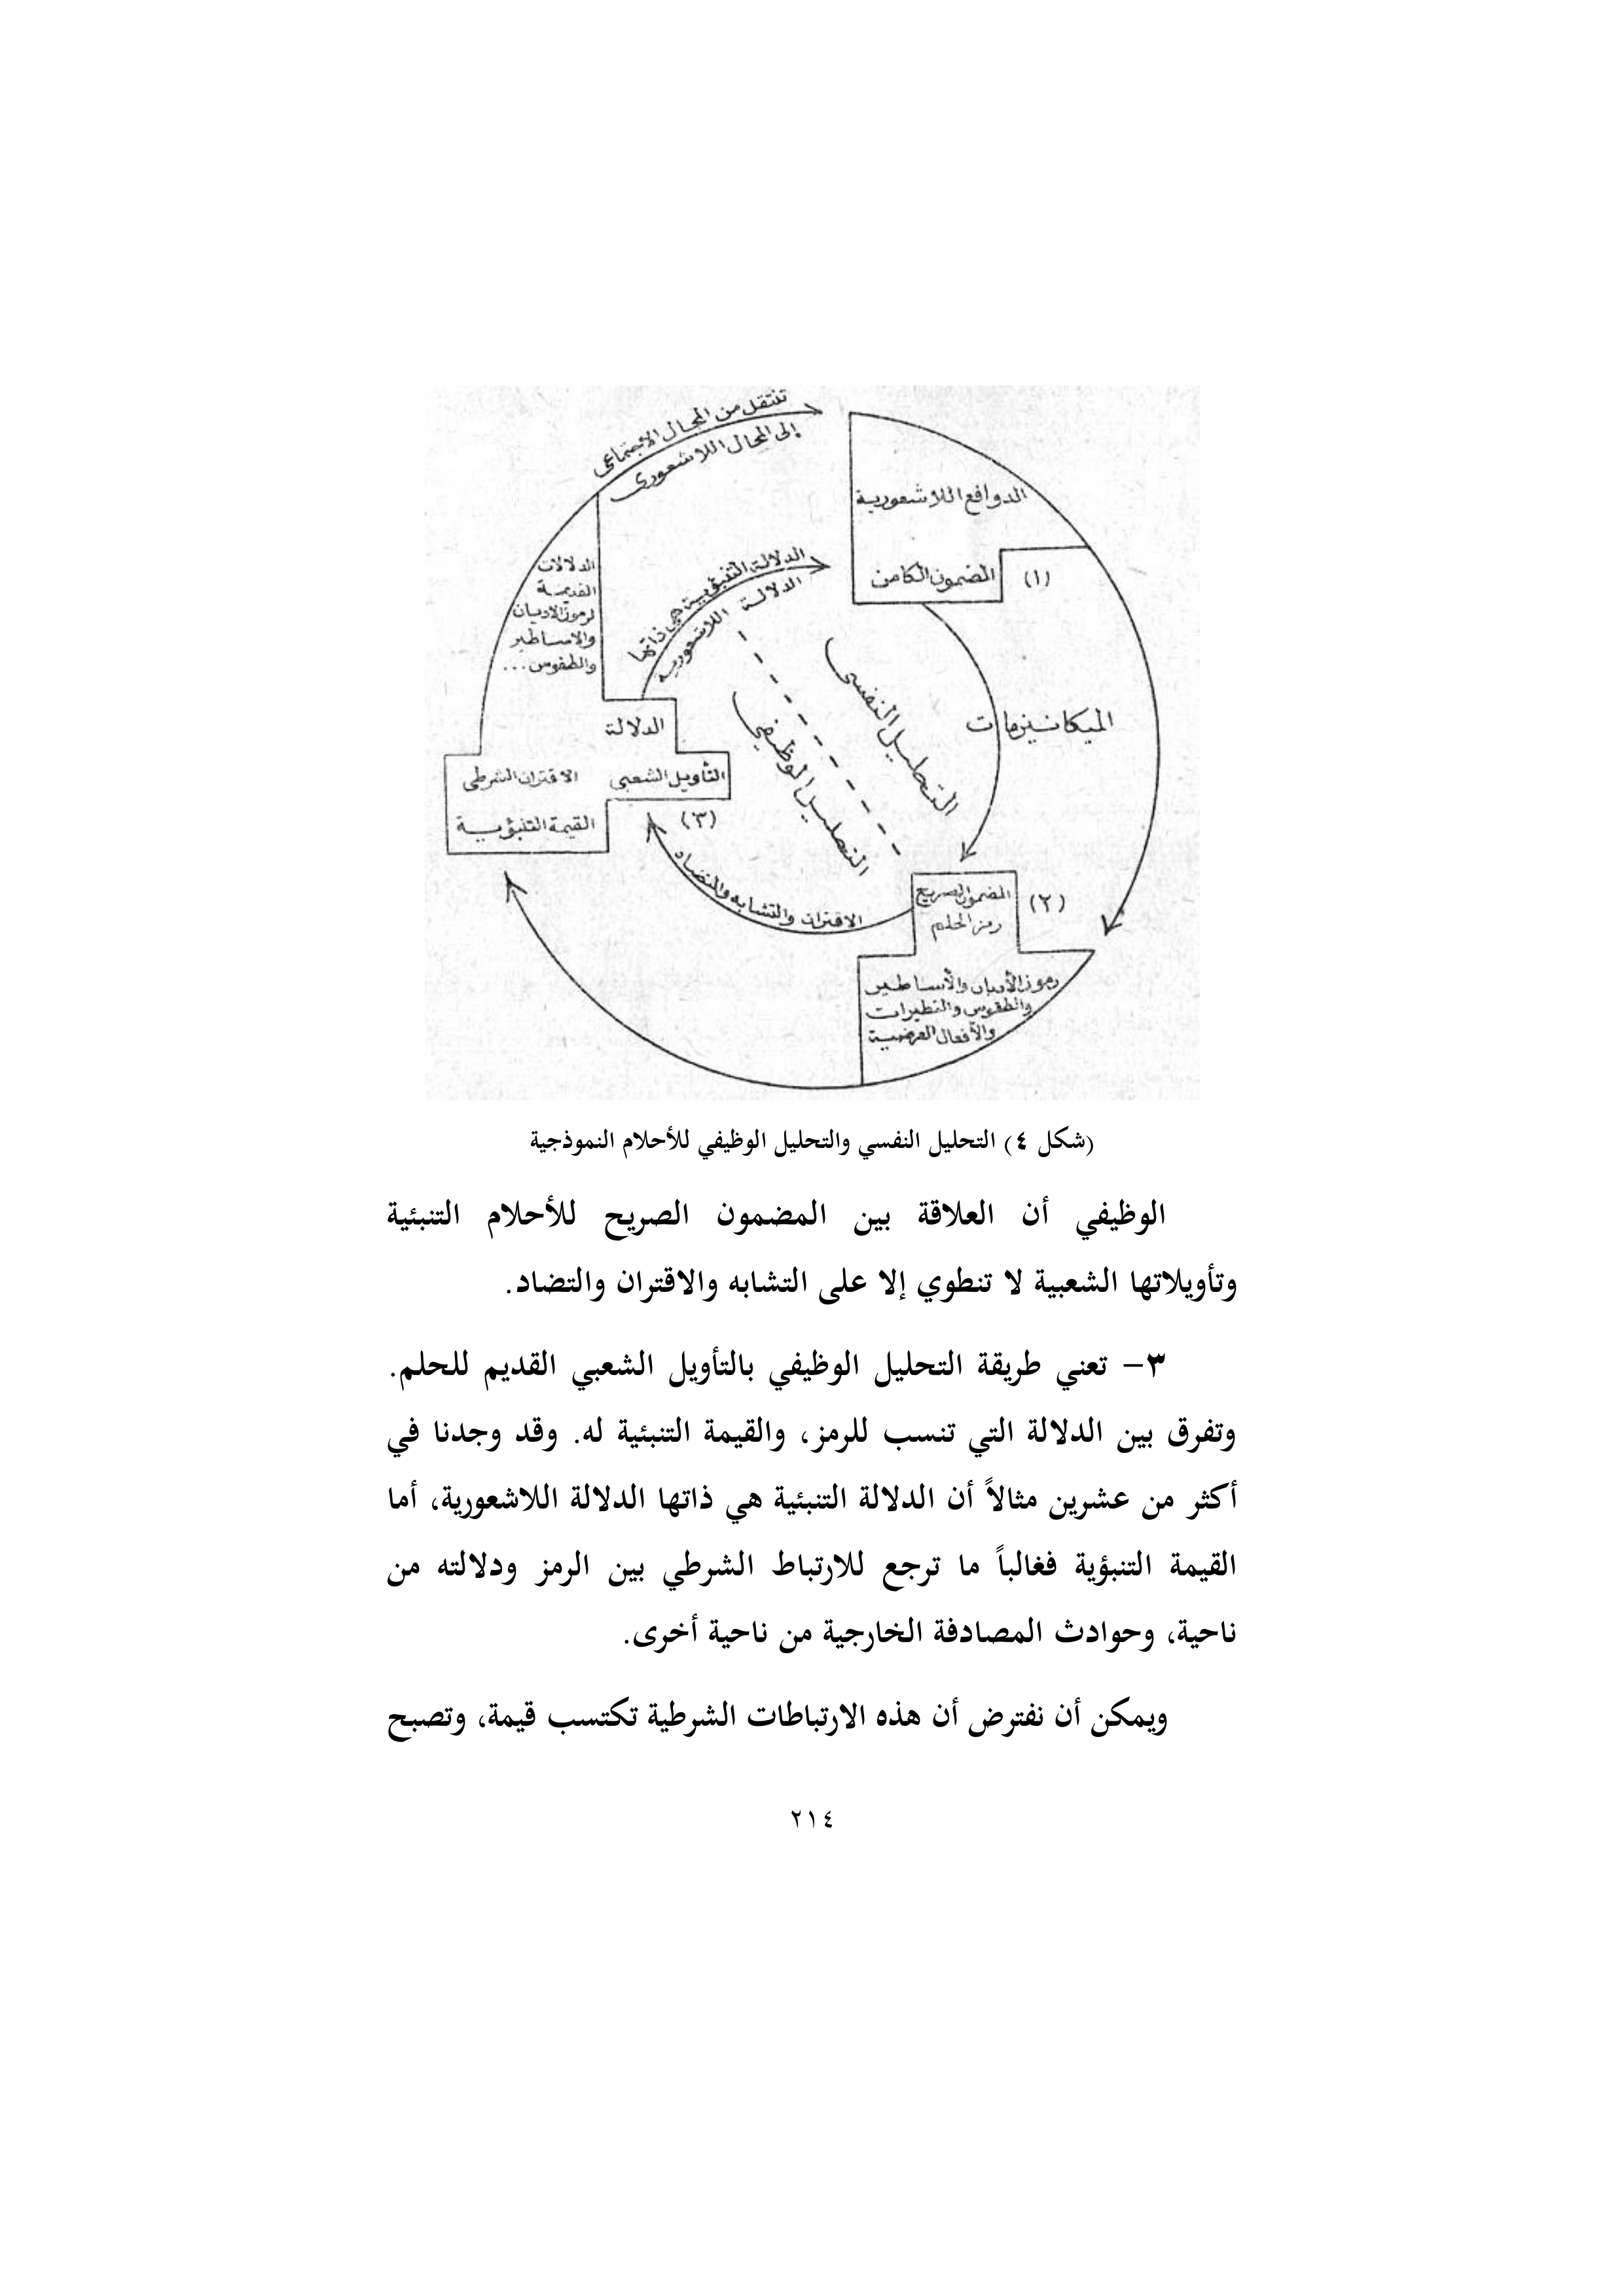 تنتقل من المجال الاجتماعى
إلى المجال اللاشعورى
الدوافع اللاشعورية
المضمون الكامن
(١)
الدلالة التنبؤية هي ذاتها
الدلالة اللاشعورية
الدلالات
القديمة
لرموز الاديان
والاساطير
والطقوس...
التحليل النفسى
التحليل الوظيفي
الميكانيزمات
الدلالة
التأويل الشعبى
الاقتران الشرطى
القيمة التنبؤية
(٣)
الاقتران والتشابه والتضاد
المضمون الصريح
رمز الحلم
(٢)
رموز الأديان والأساطير
والطقوس والتطيرات
والأفعال العرضية
(شكل ٤) التحليل النفسي والتحليل الوظيفي للأحلام النموذجية
الوظيفي أن العلاقة بين المضمون الصريح للأحلام التنبئية
وتأويلاتها الشعبية لا تنطوي إلا على التشابه والاقتران والتضاد.
٣– تعني طريقة التحليل الوظيفي بالتأويل الشعبي القديم للحلم.
وتفرق بين الدلالة التي تنسب للرمز، والقيمة التنبئية له. وقد وجدنا في
أكثر من عشرين مثالاً أن الدلالة التنبئية هي ذاتها الدلالة اللاشعورية، أما
القيمة التنبؤية فغالباً ما ترجع للارتباط الشرطي بين الرمز ودلالته من
ناحية، وحوادث المصادفة الخارجية من ناحية أخرى.
ويمكن أن نفترض أن هذه الارتباطات الشرطية تكتسب قيمة، وتصبح
٢١٤